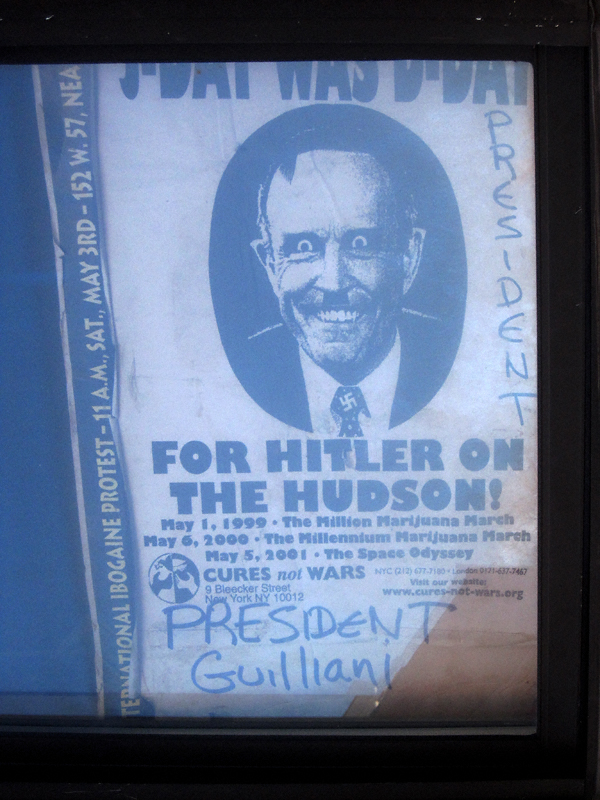 J-DAY WAS D-DAY
FOR HITLER ON
THE HUDSON!
May 1, 1999 • The Million Marijuana March
May 6, 2000 • The Millennium Marijuana March
May 5, 2001 • The Space Odyssey
CURES not WARS
9 Bleecker Street
New York NY 10012
NYC (212) 677-7180 • London 0171-637-7467
Visit our website:
www.cures-not-wars.org
PRESIDENT
Guilliani
PRESIDENT
TERNATIONAL IBOGAINE PROTEST – 11 A.M., SAT., MAY 3RD – 152 W. 57, NEA